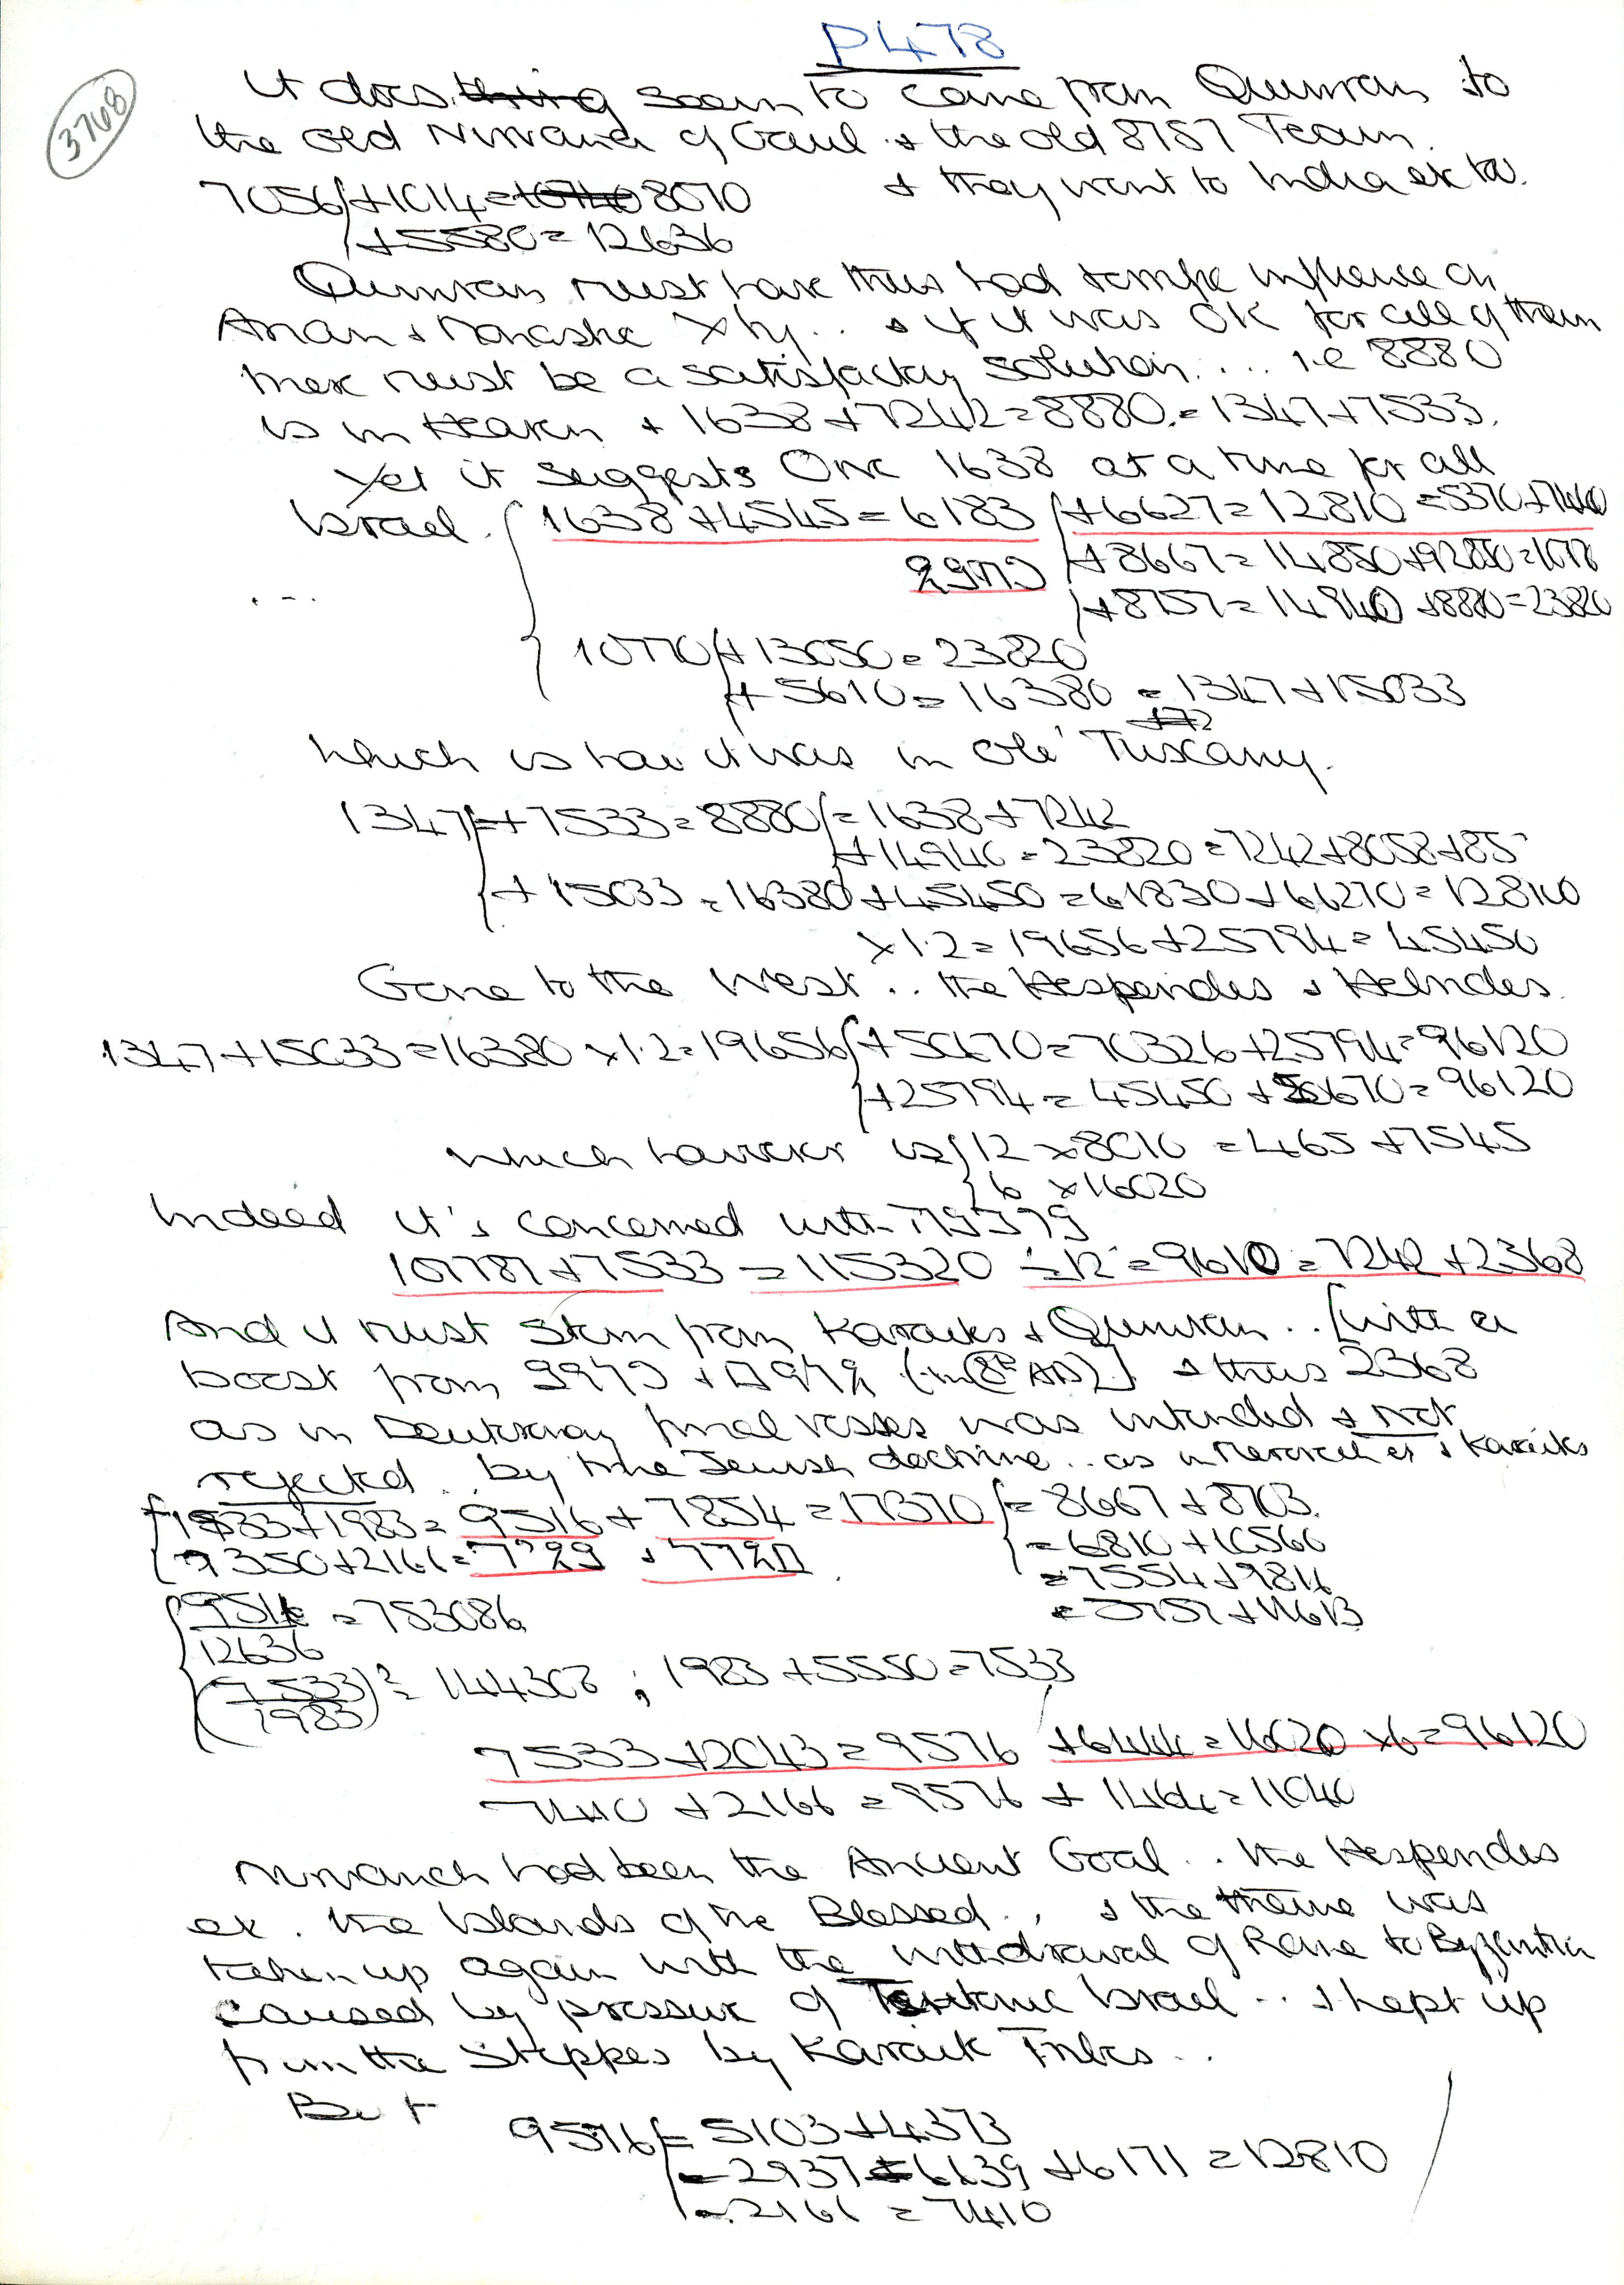 P478
3768
It does seem to come from Qumran to
the old Nirvana of Gaul & the old 8757 Team.
7056 +1014=8070 & they went to India ex to.
+5580=12636
Qumran must have thus had terrific influence on
Anan & Xty.. & if it was OK for all of them
there must be a satisfactory solution.... i.e 8880
is in Heaven & 1638+7242=8880.=1347+7533.
Yet it suggests One 1638 at a time for all
Israel. 1638+4545=6183 +6627=12810=5370+7440
+8667=14850
+8757=14940 +8880=23820
...
10770 +13050=23820
+5610=16380 =1347+15033
which is how it was in Ole' Tuscany.
1347 +7533=8880 =1638+7242
+14940=23820=7242+8058+85
+15033=16380 +45450=61830+66270=128100
×1.2=19656+25794=45450
Gone to the West.. the Hesperides &
1347+15033=16380×1.2=19656 +50670=70326+25794=96120
+25794=45450+50670=96120
which however is 12×8010=465+7545
6×16020
Indeed it's concerned with
107787+7533=115320÷12=9610=7242+2368
And it must stem from Karaites & Qumran.. (with a
boost from (in 8th AD)) & thus 2368
as in Deuteronomy final verses was intended & not
rejected.. by the Jewish doctrine.. as in & Karaites
7533+1983=9516+7854=17370 =8667+8703.
7350+2166= =6810+10560
=7554+9816
9516 =753086
12636
(7533)²=144308 ; 1983+5550=7533
1983
7533+2043=9576 +6444=16020×6=96120
7410+2166=9576+1464=11040
had been the Ancient Goal.. the Hesperides
ex. the Islands of the Blessed.., & the theme was
taken up again with the withdrawal of Rome to
caused by pressure of Teutonic Israel... & kept up
from the Steppes by Karaite Tribes..
But
9576 =5103+4373
-2937=6639+6171=12810
-2166=7410